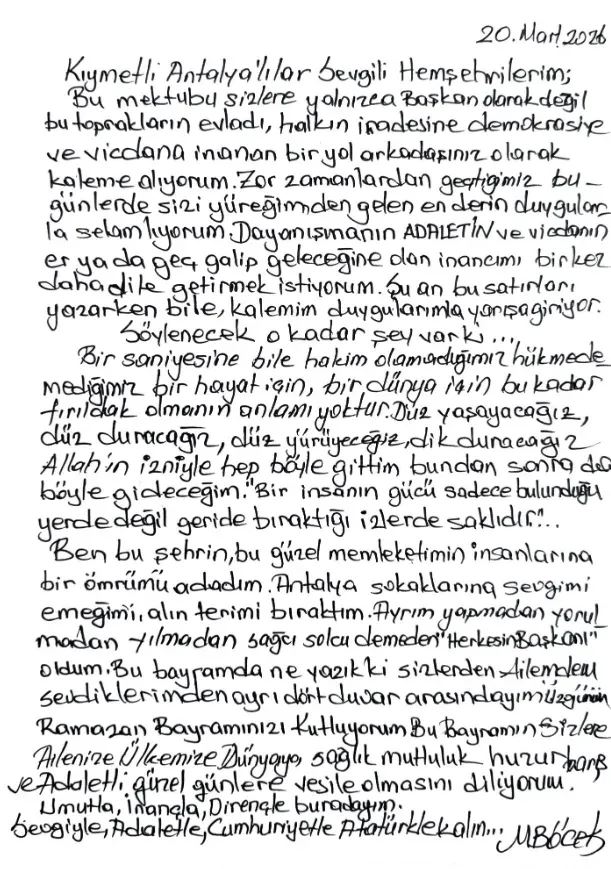 20.Mart.2026
Kıymetli Antalya'lılar Sevgili Hemşehrilerim;
Bu mektubu sizlere yalnızca Başkan olarak değil
bu toprakların evladı, halkın iradesine demokrasiye
ve vicdana inanan bir yol arkadaşınız olarak
kaleme alıyorum. Zor zamanlardan geçtiğimiz bu-
günlerde sizi yüreğimden gelen en derin duygular-
la selamlıyorum. Dayanışmanın ADALETİN ve vicdanın
er ya da geç galip geleceğine olan inancımı bir kez
daha dile getirmek istiyorum. Şu an bu satırları
yazarken bile, kalemim duygularımla yarışa giriyor.
Söylenecek o kadar şey var ki...
Bir saniyesine bile hakim olamadığımız hükmede
mediğimiz bir hayat için, bir dünya için bu kadar
fırıldak olmanın anlamı yoktur. Düz yaşayacağız,
düz duracağız, düz yürüyeceğiz, dik duracağız
Allah'ın izniyle hep böyle gittim bundan sonra da
böyle gideceğim. "Bir insanın gücü sadece bulunduğu
yerde değil geride bıraktığı izlerde saklıdır"..
Ben bu şehrin, bu güzel memleketimin insanlarına
bir ömrümü adadım. Antalya sokaklarına sevgimi
emeğimi, alın terimi bıraktım. Ayrım yapmadan yorul
madan yılmadan sağcı solcu demeden "Herkesin Başkanı"
oldum. Bu bayramda ne yazık ki sizlerden Ailemden
sevdiklerimden ayrı dört duvar arasındayım Üzgünüm
Ramazan Bayramınızı Kutluyorum Bu Bayramın Sizlere
Ailenize Ülkemize Dünyaya, sağlık mutluluk huzur barış
ve Adaletli, güzel günlere vesile olmasını diliyorum.
Umutla, İnançla, Dirençle buradayım.
Sevgiyle, Adaletle, Cumhuriyetle Atatürkle kalın... MBÖCEK